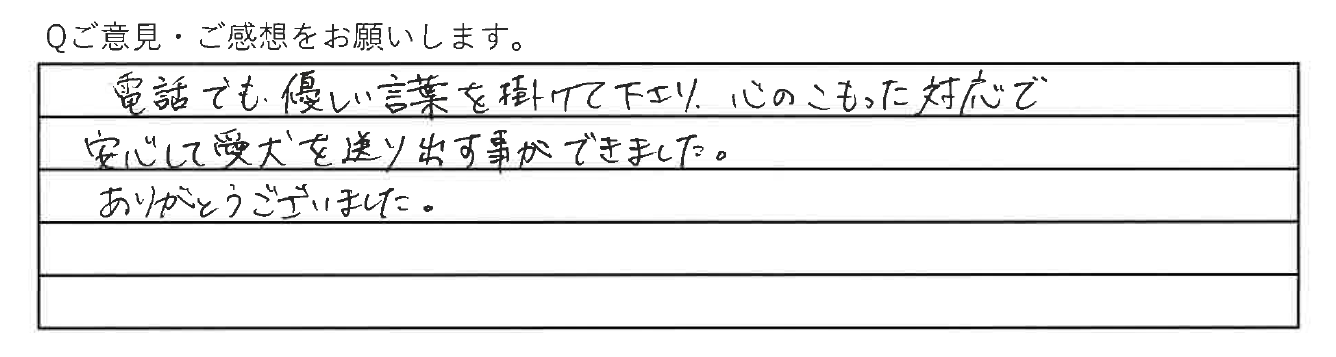 Qご意見・ご感想をお願いします。
電話でも優しい言葉を掛けて下さり、心のこもった対応で
安心して愛犬を送り出す事ができました。
ありがとうございました。